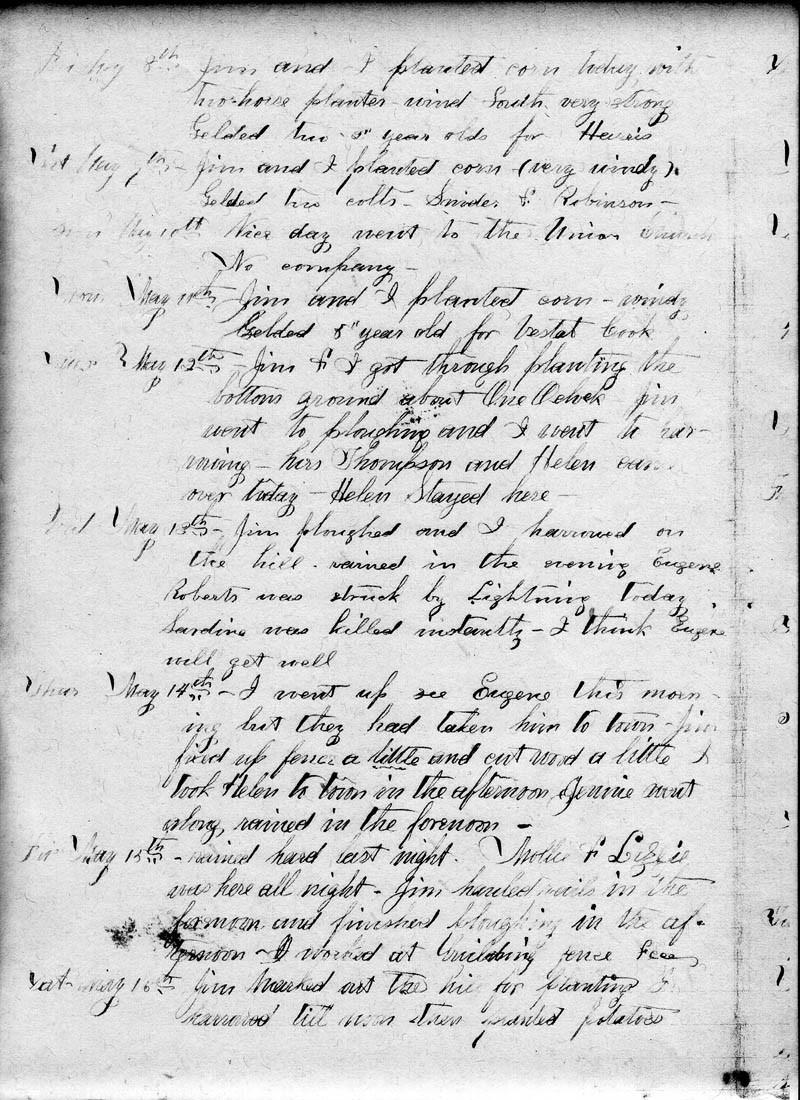 8th Jim and I planted corn today with
two-horse planter - wind South, very strong
Gelded two 5" year olds for Harris
May 9th - Jim and I planted corn (very windy).
Gelded two colts - Snider & Robinson -
May 10th Nice day went to the Union Church
No company -
Mon May 11th - Jim and I planted corn - windy
Gelded 5" year old for Vestal Cook
Tues May 12th - Jim & I got through planting the
bottom ground about One Oclock Jim
went to ploughing and I went to har-
rowing - Mrs Thompson and Helen came
over today - Helen Stayed here -
Wed May 13th - Jim ploughed and I harrowed on
the hill - rained in the evening Eugene
Roberts was struck by Lightning Today
was killed instantly - I think Eugene
will get well
Thur May 14th - I went up see Eugene this morn-
ing but they had taken him to town - Jim
fixed up fence a little and cut wood a little I
took Helen to town in the afternoon Jennie went
along, rained in the forenoon -
Fri May 15th - rained hard last night. Mollie & Lizzie
was here all night - Jim hauled rails in the
forenoon and finished ploughing in the af-
ternoon - I worked at building fence
Sat May 16th Jim Marked out the hill for planting I
harrowed till noon then planted potatoes